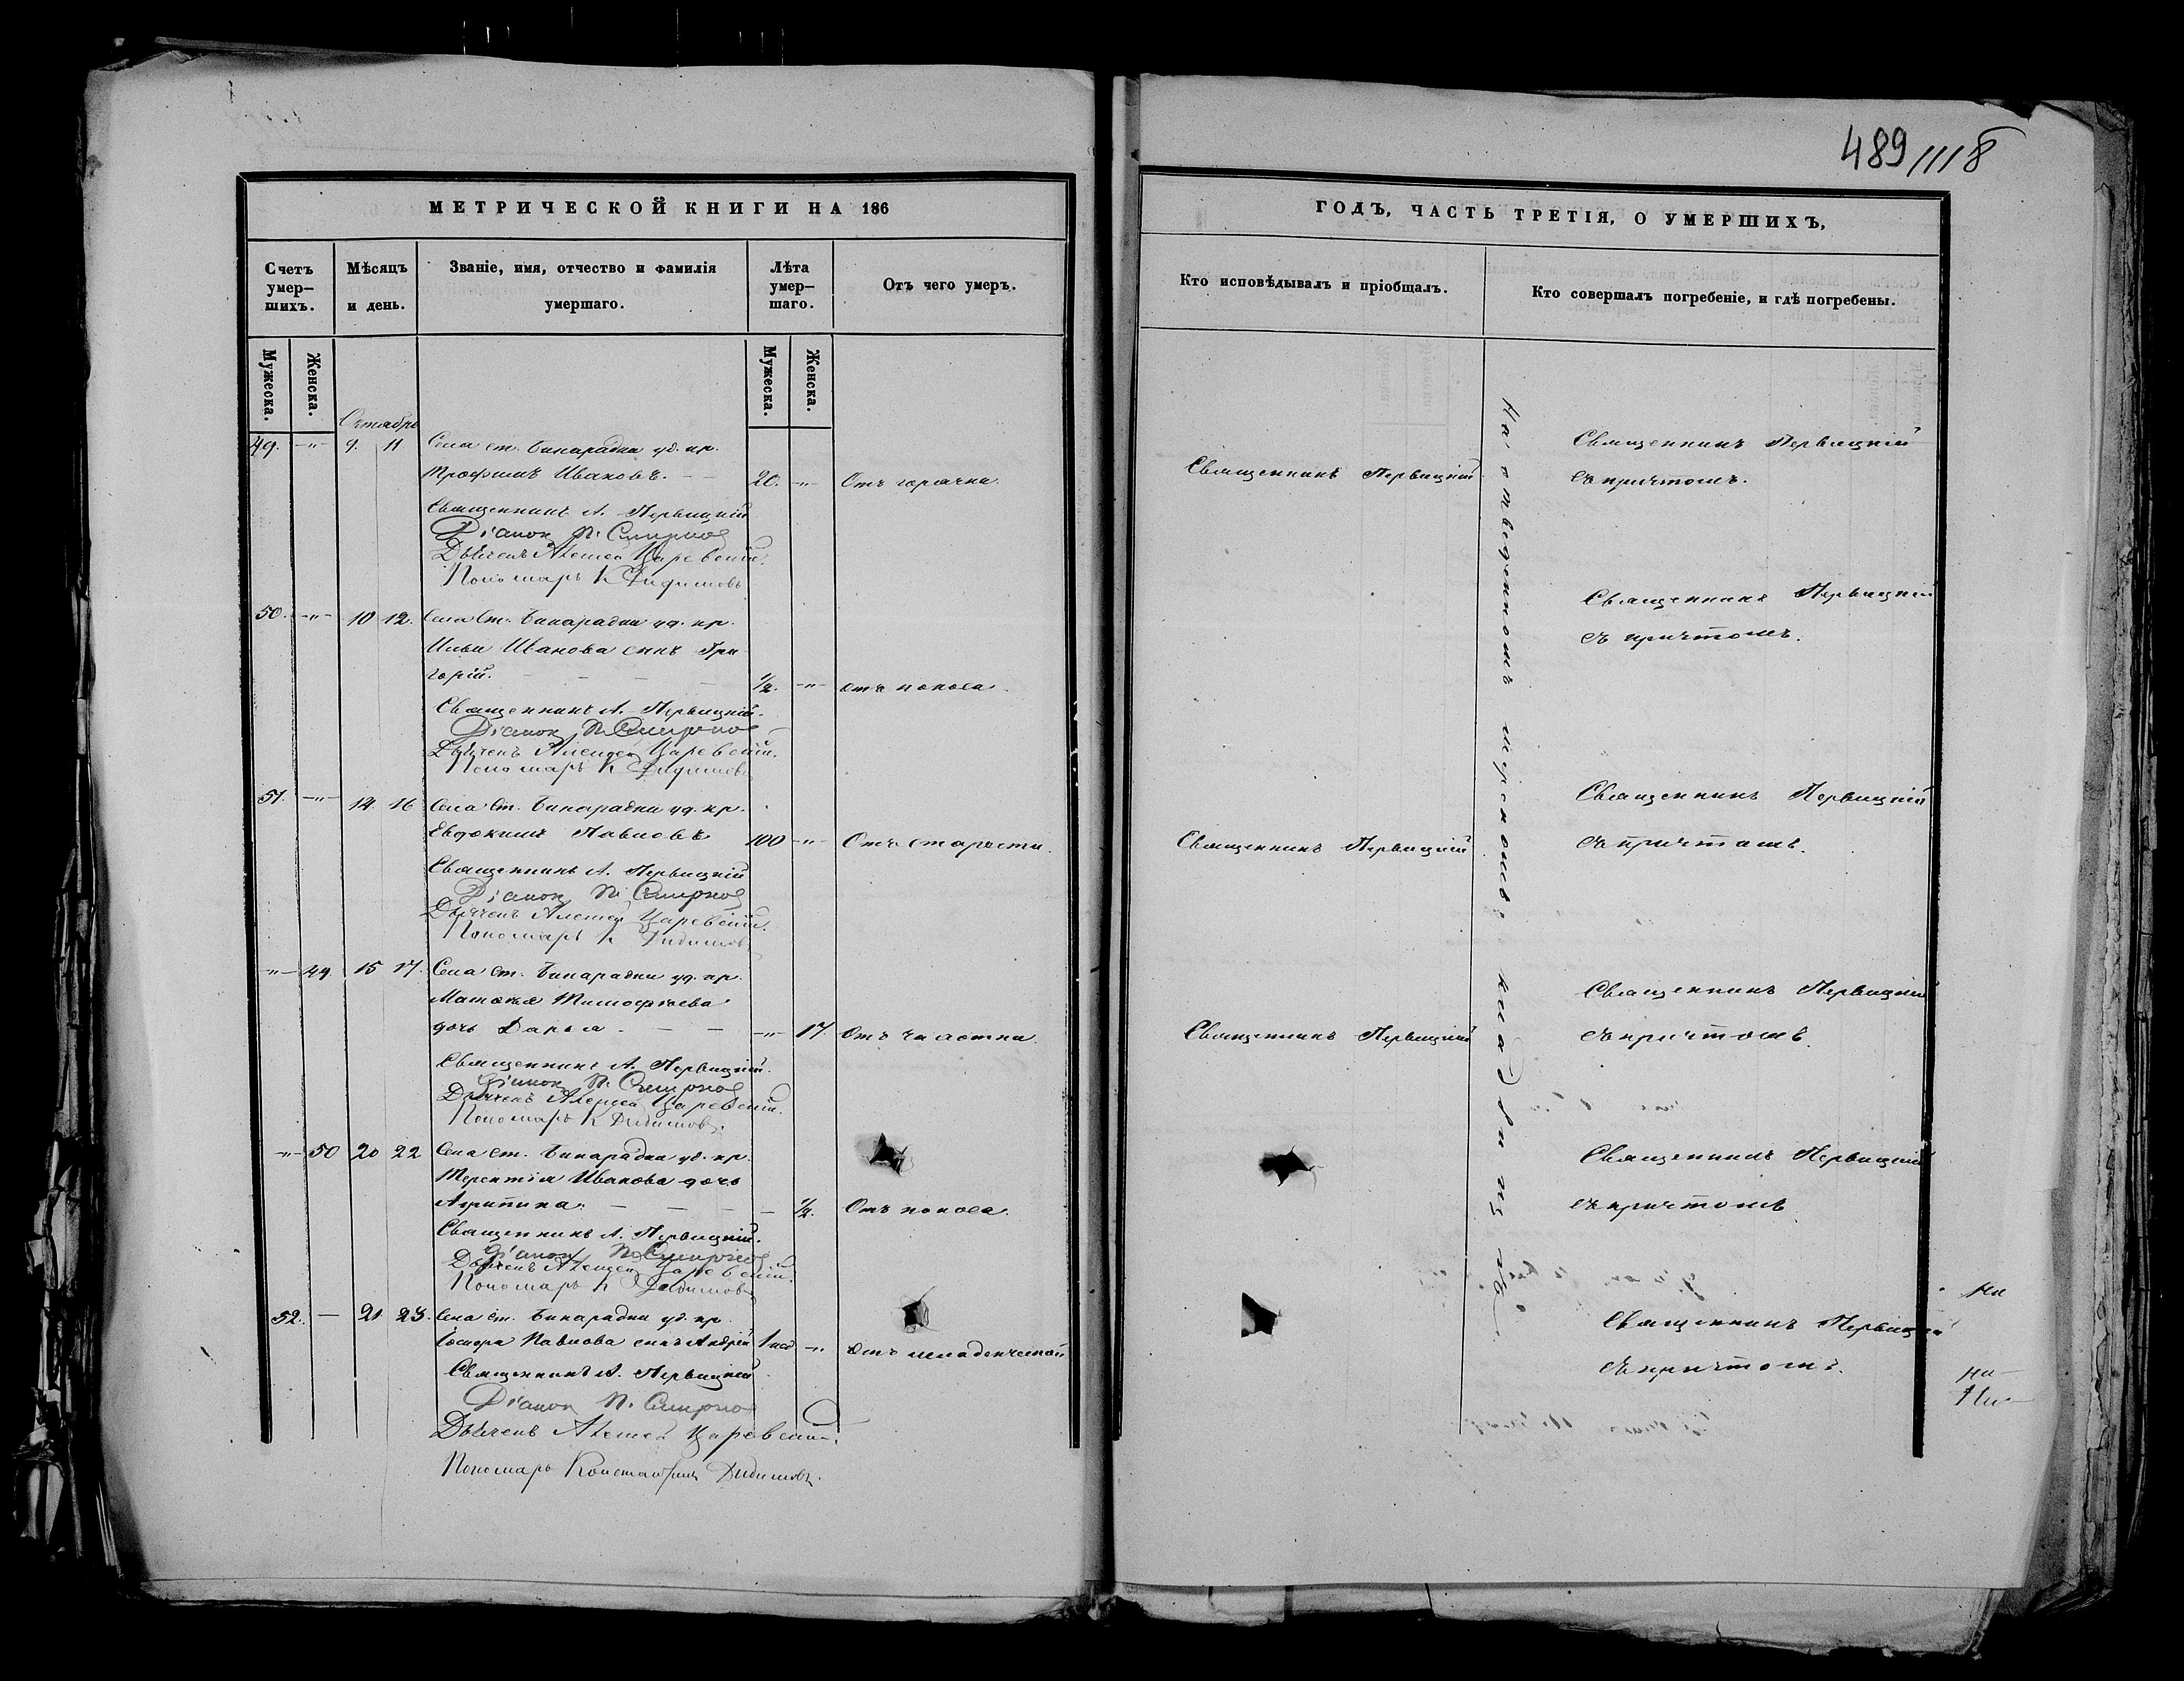 489 1118
МЕТРИЧЕСКОЙ КНИГИ НА 186
ГОДЪ, ЧАСТЬ ТРЕТІЯ, О УМЕРШИХЪ,
Счетъ умер-шихъ.
Мѣсяцъ и день.
Званіе, имя, отчество и фамилія умершаго.
Лѣта умер-шаго.
Отъ чего умеръ.
Кто исповѣдывалъ и пріобщалъ.
Кто совершалъ погребеніе, и гдѣ погребены.
Мужеска.
Женска.
Мужеска.
Женска.
Октябрь
49. -"- 9. 11 Села ст. Бинарадки уд. кр.
Трофимъ Ивановъ. 20. -"- Отъ горячки.
Священникъ Первицкій
Священникъ Первицкій
съ причтомъ.
Священникъ А. Первицкій
Діаконъ П. Смирнов
Дьячекъ Алексей Царевскій.
Пономарь К Дидимовъ
50. -"- 10 12. Села Ст. Бинарадки уд. кр.
Ильи Иванова сынъ Гри
горій. 1/2. -"- отъ поноса.
Священникъ Первицкій
съ причтомъ.
Священникъ А. Первицкій.
Діаконъ П. Смирнов
Дьячекъ Алексей Царевскій.
Пономарь К Дидимовъ
51. -"- 14 16 Села Ст. Бинарадки уд. кр.
Евдокимъ Павловъ 100 -"- Отъ старости.
Священникъ Первицкій
Священникъ Первицкій
съ причтомъ.
Священникъ А. Первицкій
Діаконъ П. Смирнов
Дьячекъ Алексей Царевскій.
Пономарь К Дидимов
-"- 49. 15 17. Села Ст. Бинарадки уд. кр.
Матвея Тимофѣева
дочь Дарья. -"- 17. Отъ чахотки.
Священникъ Первицкій
Священникъ Первицкій
съ причтомъ.
Священникъ А. Первицкій.
Діаконъ П. Смирнов
Дьячекъ Алексей Царевскій.
Пономарь К Дидимовъ.
-"- 50 20 22 Села Ст. Бинарадки уд. кр.
Терентія Иванова дочь
Агрипина. 1/2. Отъ поноса.
Священникъ Первицкій
съ причтомъ
Священникъ А. Первицкій.
Діаконъ П. Смирнов
Дьячекъ Алексей Царевскій.
Пономарь К Дидимовъ
52. — 21 23. Села Ст. Бинарадки уд. кр.
Павлова сынъ Андрей -"- отъ младенческой
Священникъ Первицкій
съ причтомъ.
Священникъ А. Первицкій
Діаконъ П. Смирнов
Дьячекъ Алексей Царевскій.
Пономарь Константинъ Дидимовъ.
На отведенномъ мірскомъ кладбищѣ.